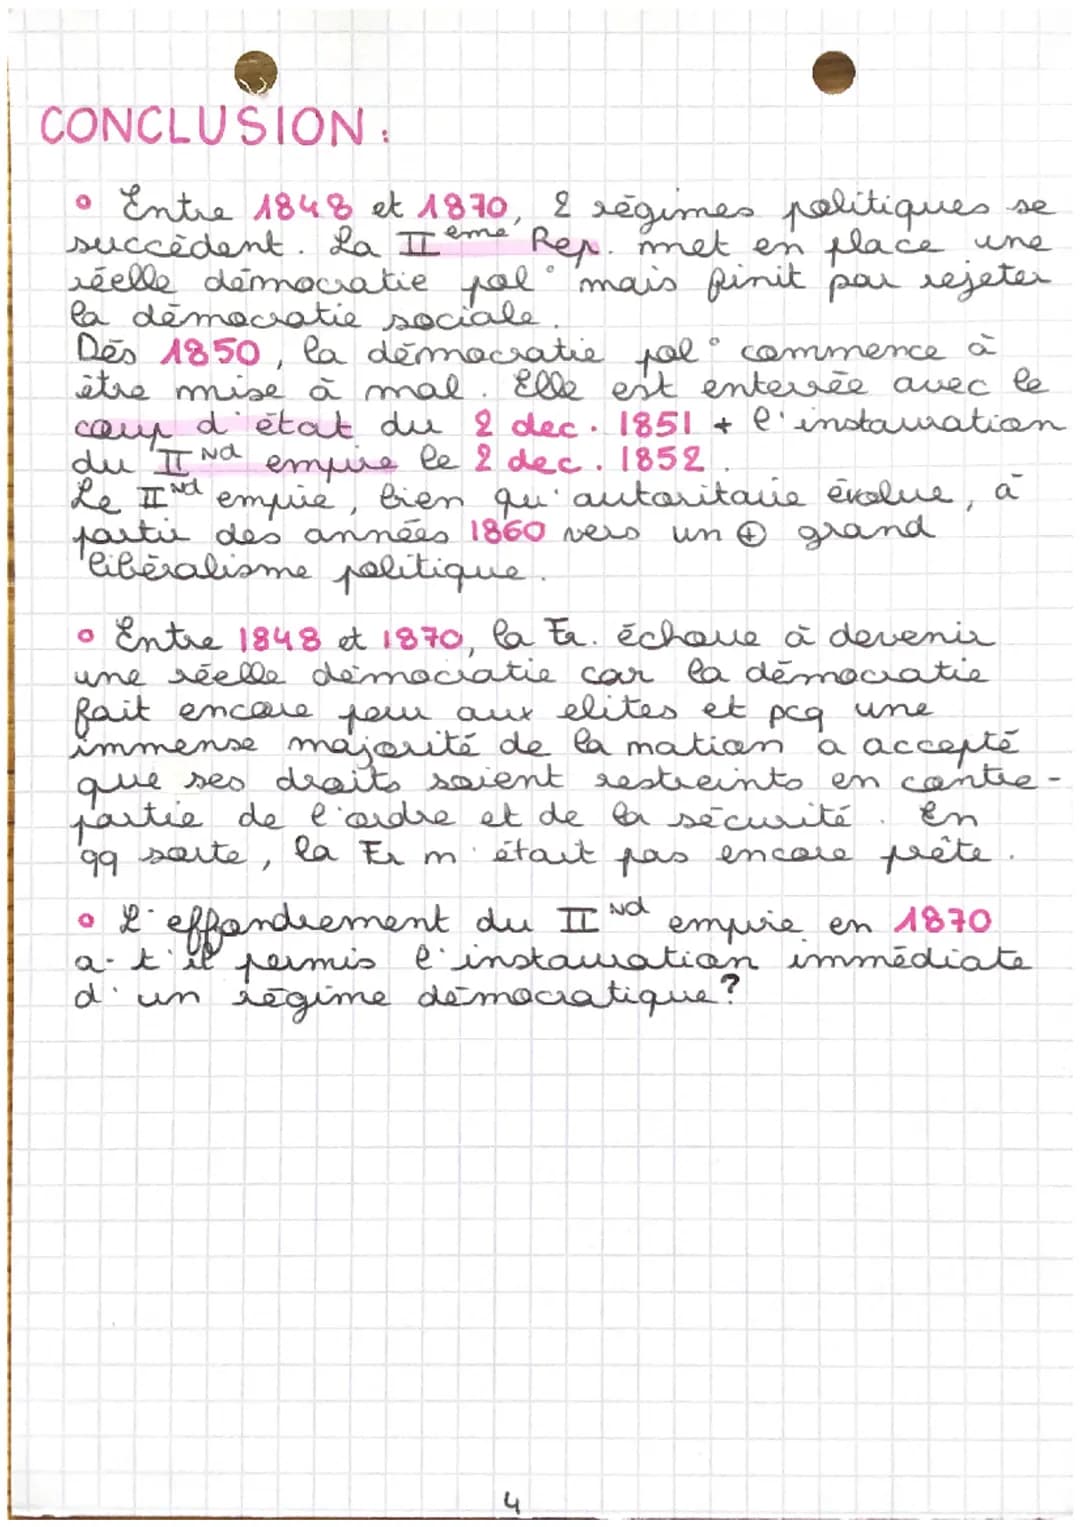 CONCLUSION :
° Entre 1848 et 1870, 2 régimes politiques se
succèdent. La IIème Rep. met en place une
réelle démocratie pol° mais finit par rejeter
la démocratie sociale.
Dès 1850, la démocratie pol° commence à
être mise à mal. Elle est enterrée avec le
coup d'état du 2 dec. 1851 + l'instauration
du IINd empire le 2 dec. 1852.
Le IINd empire, bien qu'autoritaire évolue, à
partir des années 1860 vers un ⊕ grand
libéralisme politique.
° Entre 1848 et 1870, la Fr. échoue à devenir
une réelle démocratie car la démocratie
fait encore peur aux elites et pcq une
immense majorité de la nation a accepté
que ses droits soient restreints en contre-
partie de l'ordre et de la sécurité. En
qq sorte, la Fr n'était pas encore prête.
° L'effondrement du IINd empire en 1870
a-t'il permis l'instauration immédiate
d'un régime démocratique?
4